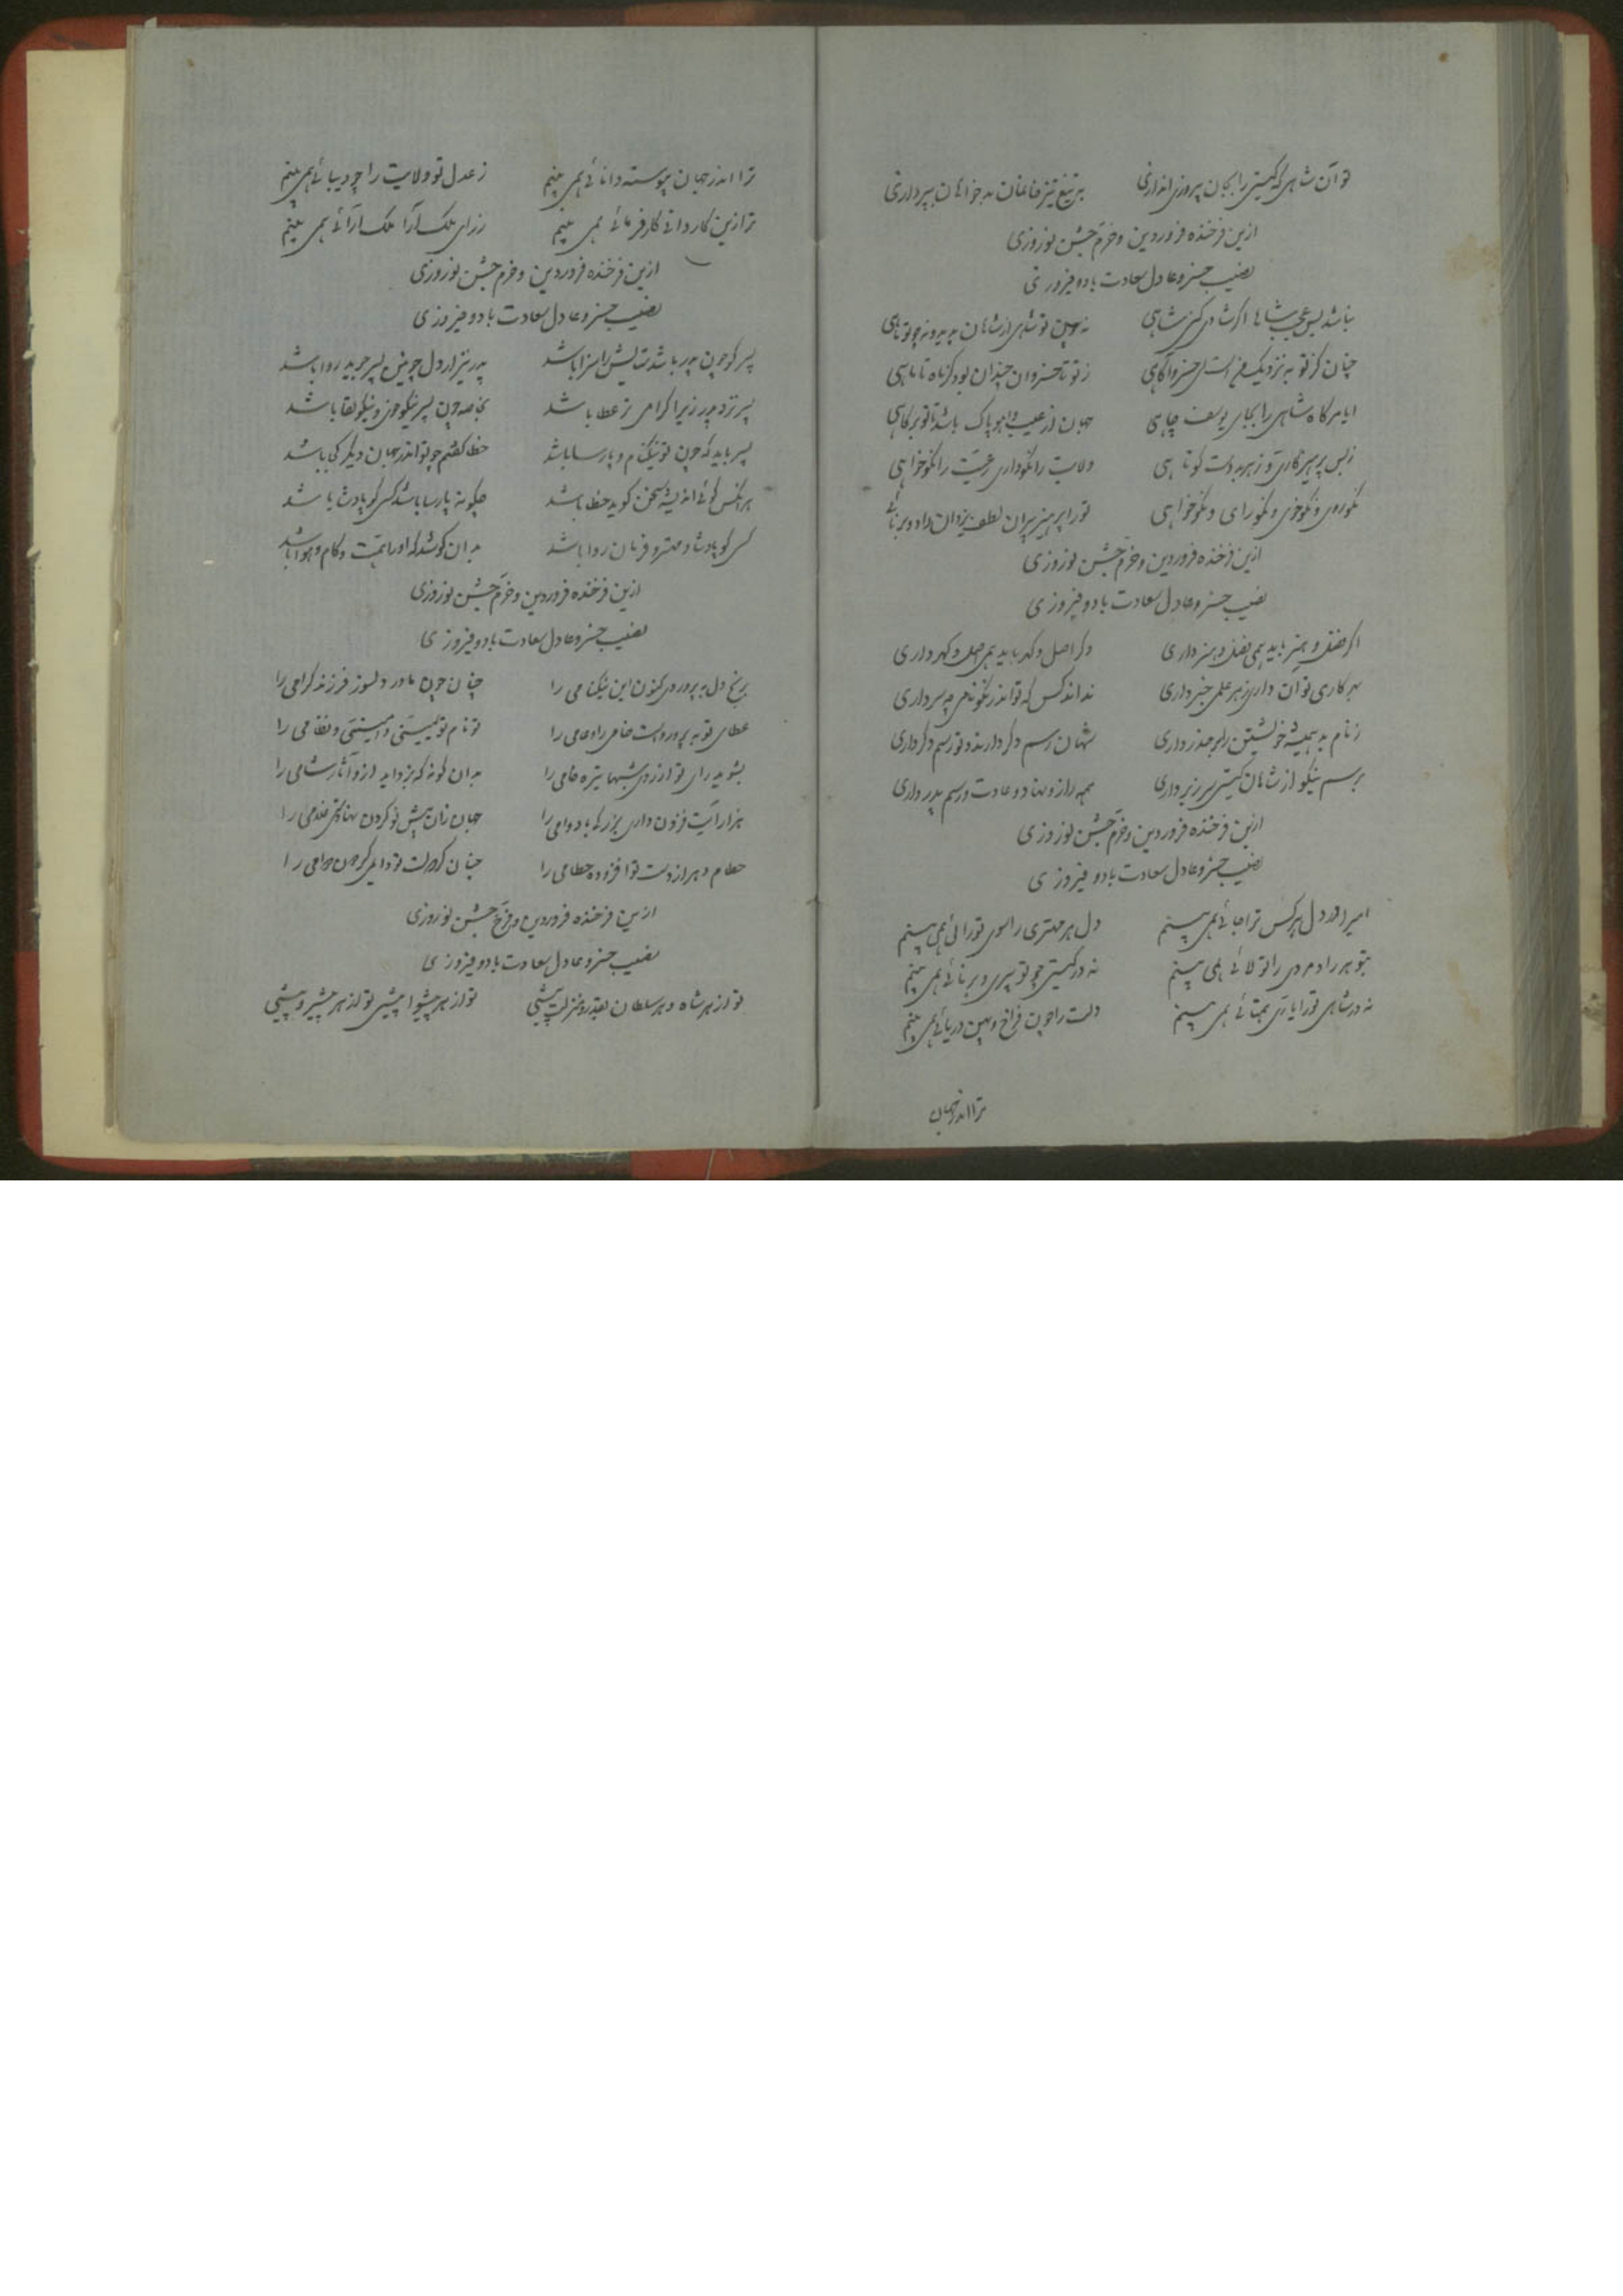 تو آن شاهی که گیتی را بجان پیروزی اندازی بتیغ تیز خانمان بدخواهان بپردازی
ازین فرخنده فروردین و خرم جشن نوروزی
نصیب خسرو عادل سعادت باد و فیروزی
نباشد بس عجب شاها اگر شادی کنی شاهی
چنان کز تو به نزدیک من است ای خسرو آگاهی ز تو تا خسروان چندان بود کز ماه تا ماهی
ایا بر گاه شاهی را بجای یوسف چاهی جهان از عیب و آهو پاک باشد تا تو بر گاهی
ز بس پرهیزگاری و ز هر بد دست کوتاهی ولایت را نگوداری رعیت را نگوخواهی
نکوروی و نکوخوی و نکورای و نکوخواهی تو را پر هنر پیران لطف یزدان داد و برنائی
ازین فرخنده فروردین و خرم جشن نوروزی
نصیب خسرو عادل سعادت باد و فیروزی
اگر فضل و هنر باید همی فضل و هنر داری وگر اصل و گهر باید همی اصل و گهر داری
بهر کاری توان داری ز هر علمی خبر داری نداند کس که تو اندر نکونامی چه سر داری
ز نام بد همیشه خویشتن را بر حذر داری شهان رسم دگر دارند و تو رسم دگر داری
برسم نیکو از شاهان گیتی سر زبر داری همه راز و نهاد و عادت و رسم پدر داری
ازین فرخنده فروردین و خرم جشن نوروزی
نصیب خسرو عادل سعادت باد و فیروزی
امیرا در دل هر کس ترا جائی همی بینم دل هر مهتری را سوی تو رائی همی بینم
بتو هر رادمردی را تولائی همی بینم نه در گیتی چو تو پیری و برنائی همی بینم
نه در شاهی تو را یاری همتائی همی بینم دلت را چون فراخ و پهن دریائی همی بینم
ترا اندر جهان
ترا اندر جهان پیوسته دانائی همی بینم ز عدل تو ولایت را چو دیبائی همی بینم
ترا زین کاردانی کارفرمائی همی بینم ز رای ملک آرا ملک آرائی همی بینم
ازین فرخنده فروردین و خرم جشن نوروزی
نصیب خسرو عادل سعادت باد و فیروزی
پسر کو چون پدر باشد ستایش را سزا باشد پدر نیز از دل خویش پسر جوید روا باشد
پسر نزد پدر زیرا گرامی تر عطا باشد بخاصه چون پسر نیکوخوی و نیکولقا باشد
پسر باید که چون تو نیکنام و پارسا باشد خطا گفتم چو تو اندر جهان دیگر کی باشد
هر آنکس کو بی اندیشه سخن گوید خطا باشد چگونه پارسا باشد کسی کو پادشا باشد
کسی کو پادشا و مهتر و فرمان روا باشد بدان کوشد که او را نعمت و کام و هوا باشد
ازین فرخنده فروردین و خرم جشن نوروزی
نصیب خسرو عادل سعادت باد و فیروزی
برنج دل به پروردی کنون این نیکنامی را چنان چون مادر دلسوز فرزند گرامی را
عطای تو به پرورد است خاصی را و عامی را تو نام تو یمینی و امینی و نظامی را
بشوید رای تو از روی شبها تیره فامی را بدان گونه که بزداید از و آثار شامی را
هزار آیت فزون داری بزرگی با دوامی را جهان زان پیش تو گردن نهاد غلامی را
حطام دهر از دست تو افزوده حطامی را
ازین فرخنده فروردین و فرخ جشن نوروزی
نصیب خسرو عادل سعادت باد و فیروزی
تو از هر شاه و هر سلطان بقدر و منزلت پیشی تو از هر پیشوا پیشی تو از هر بیشتر بیشی